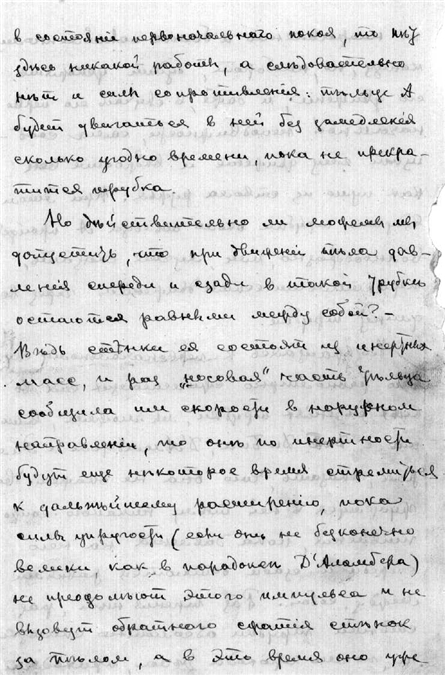 в состоянiи первоначальнаго покоя, то нѣт
здѣсь никакой работы, а слѣдовательно
нѣт и силы сопротивленiя: тѣльце А
будет двигаться в ней без замедленiя
сколько угодно времени, пока не прекра-
тится трубка.
Но дѣйствительно ли можем мы
допустить, что при движенiи тѣла дав-
ленiя спереди и сзади в такой трубки
остаются равными между собой? –
Вѣдь стѣнки ея состоят из инертных
масс, и раз „носовая“ часть тѣльца
сообщила им скорости в наружном
направленiи, то онѣ по инертности
будут еще нѣкоторое время стремиться
к дальнѣйшему расширенiю, пока
силы упругости (если онѣ не безконечно
велики, как в парадоксѣ Д'Аламбера)
не преодолѣют этого импульса и не
вызовут обратнаго сжатiя стѣнок
за тѣлом, а в это время оно уже